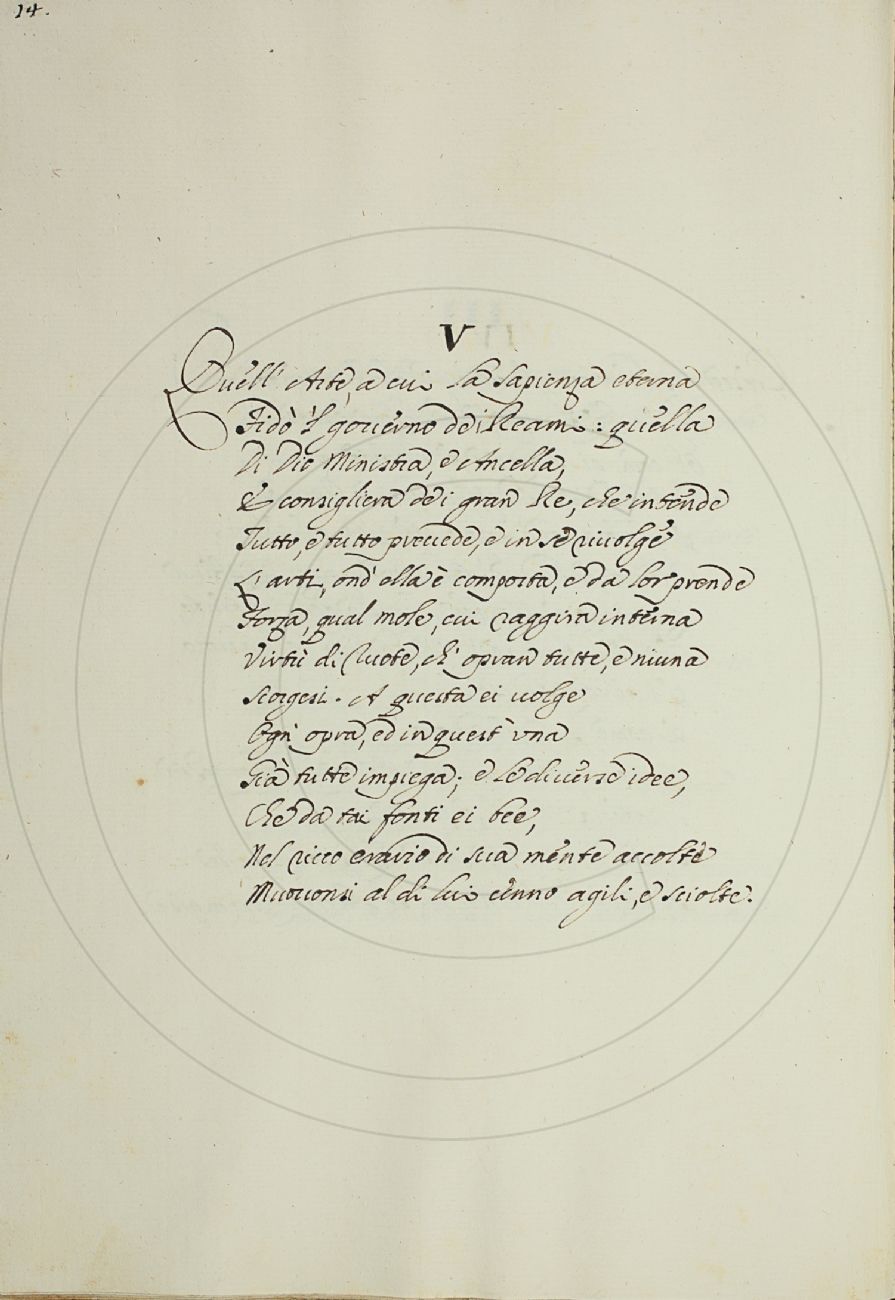 14.
V
Quell' Arte, a cui la Sapienza eterna
Fidò 'l governo dei Reami: quella
Di Dio Ministra, e Ancella,
E consigliera dei gran Re, che intende
Tutto, e tutto precede, e in se rivolge
L'arti, ond' ella è composta, e da lor prende
Forza, qual mole, cui raggira interna
Virtù di Ruote, ch' opran tutte, e niuna
Scorgesi. A questa ei volge
Ogn' opra, ed in quest' una
Già tutte impiega; e le diverse idee,
Che da tai fonti ei bee,
Nel ricco erario di sua mente accolte
Muovonsi al di lui cenno agili, e sciolte.